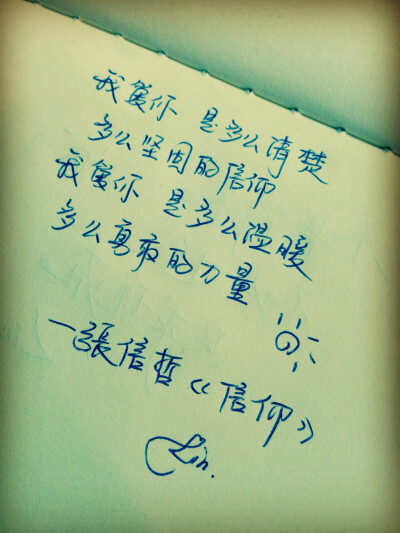 我爱你 是多么清楚
多么坚固的信仰
我爱你 是多么温暖
多么勇敢的力量
—張信哲《信仰》
Lin.